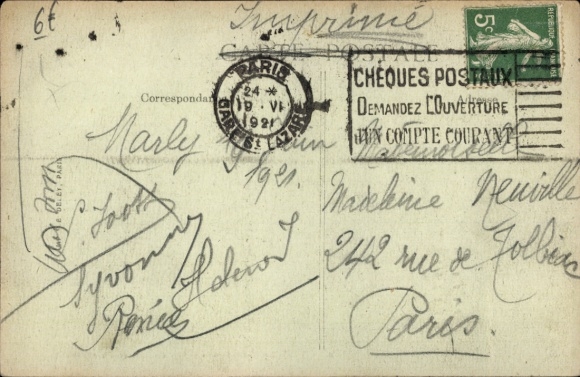 6€
Imprimé
CARTE POSTALE
5c
PARIS
24 *
19 · VI
1921
GARE St LAZARE
CHÈQUES POSTAUX
DEMANDEZ L'OUVERTURE
D'UN COMPTE COURANT
Correspondance
Adresse
Marly
1921.
Mademoiselle
Madeleine Neuville
242 rue de Tolbiac
Paris.
Yvonne
Renée